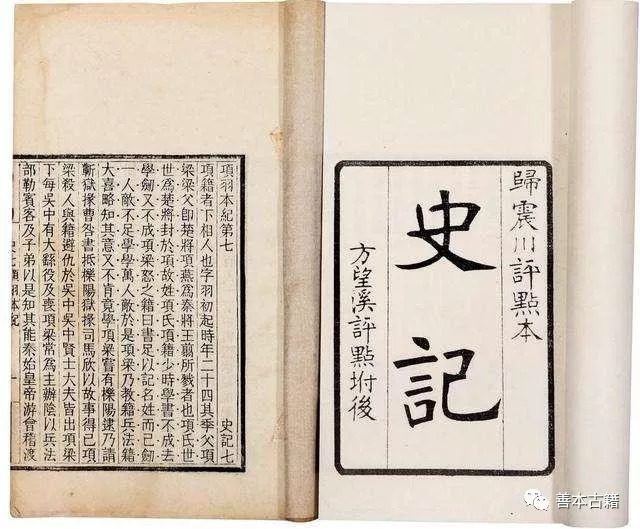 歸震川評點本
史記
方望溪評點坿後
項羽本紀第七 史記七
項籍者下相人也字羽初起時年二十四其季父項
梁梁父卽楚將項燕爲秦將王翦所戮者也項氏世
世爲楚將封於項故姓項氏項籍少時學書不成去
學劒又不成項梁怒之籍曰書足以記名姓而已劒
一人敵不足學學萬人敵於是項梁乃敎籍兵法籍
大喜略知其意又不肯竟學項梁嘗有櫟陽逮乃請
蘄獄掾曹咎書抵櫟陽獄掾司馬欣以故事得已項
梁殺人與籍避仇於吳中吳中賢士大夫皆出項梁
下每吳中有大繇役及喪項梁常爲主辦陰以兵法
部勒賓客及子弟以是知其能秦始皇帝游會稽渡
善本古籍